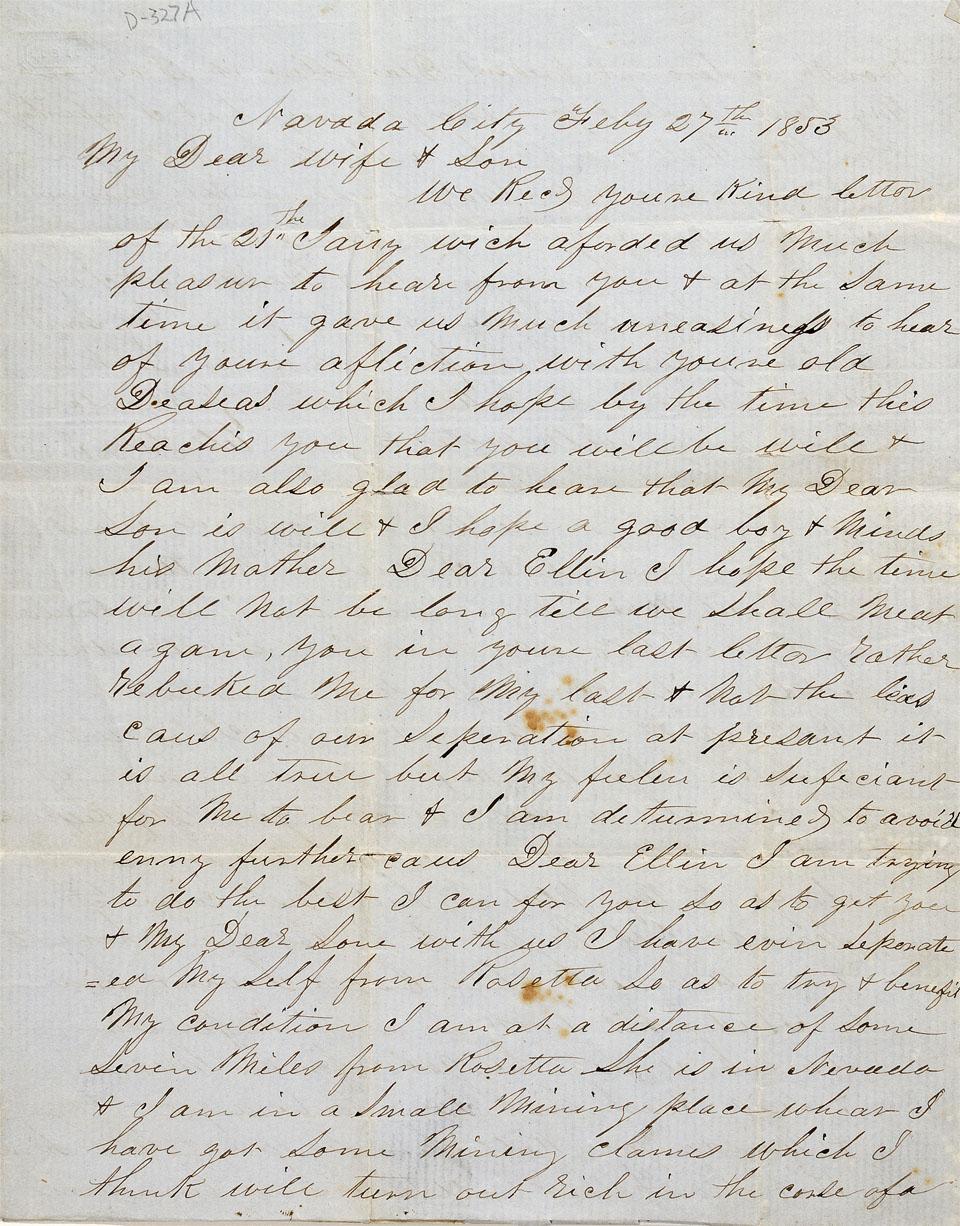 D-327A
Navada City Feby 27th 1853
My Dear wife & Son
We Recd youre Kind letter
of the 21th Jany wich aforded us Much
pleasur to heare from you & at the Same
time it gave us Much uneasiness to hear
of youre afliction with youre old
Deaseas which I hope by the time this
Reachis you that you will be will &
I am also glad to heare that My Dear
Son is will & I hope a good boy & Minds
his Mather Dear Ellin I hope the time
will Not be long till we Shall Meat
again, you in youre last letter rather
rebuked Me for My last & Not the leas
caus of our Seperation at presant it
is all true but My feelen is Suficiant
for Me to bear & I am determined to avoid
enny further caus Dear Ellin I am trying
to do the best I can for you So as to get you
& My Dear Sone with us I have evin Seperate
=ed My Self from Rosetta So as to try & benefit
My condition I am at a distance of Some
Sevin Miles from Rosetta She is in Nevada
& I am in a Small Mining place whear I
have got Some Mining clames which I
think will turn out rich in the corse of a